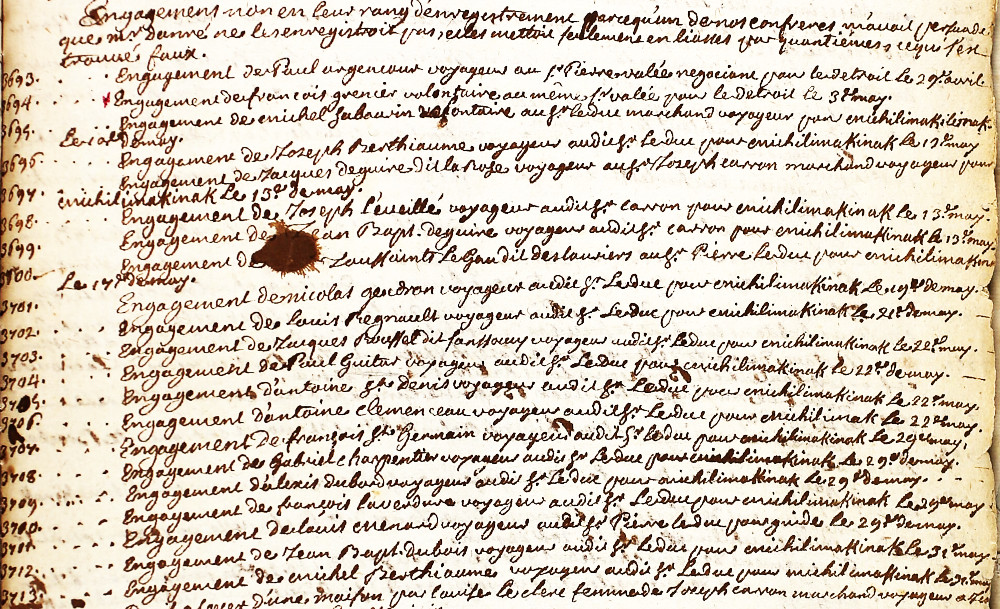 Engagement non en leur rang d'enregistrement parcequ'un de nos confreres m'avait persuadé
que mr. danré ne les enregistroit pas, et les mettoit seulement en liasses par quantiémes, ce qui s'est
trouvé faux.
3693. Engagement de Paul argencour voyageur au Sr. Pierre valée negociant pour le detroit le 29e. avril
3694. Engagement de francois grenier volontaire au meme Sr. valée pour le detroit le 3e. may.
3695. Engagement de michel Sabourin volontaire au Sr. Leduc marchand voyageur pour michilimakilimak.
Le de may.
3696. Engagement de Joseph Berthiaume voyageur audit Sr. Leduc pour michilimakinak le 13e may
3697. Engagement de Jacques deguire dit la Rose voyageur au Sr. Joseph carron marchand voyageur pour
michilimakinak le 13e. de may.
3698. Engagement de Joseph Leveillé voyageur audit Sr. carron pour michilimakinak le 13e. may.
3699. Engagement de Jean Bapt. deguire voyageur audit Sr. carron pour michilimakinak le 13e. may.
3700 Engagement de Toussaints Le Gau dit deslauriers au Sr. Pierre Leduc pour michilimakin
Le 17e. de may.
3701. Engagement de nicolas gendron voyageur audit Sr. Leduc pour michilimakinak le 19e de may.
3702. Engagement de Louis Regnault voyageur audit Sr. Leduc pour michilimakinak le 21e de may.
3703. Engagement de Jacques Roussel dit sanssoucy voyageur audit Sr Leduc pour michilimakinak le 22e. may.
3704. Engagement de Paul Guitar voyageur audit Sr. Leduc pour michilimakinak le 22e. de may.
3705. Engagement d'antoine St. denis voyageur audit Sr. Leduc pour michilimakinak le 22e. may.
3706. Engagement d'antoine clemenceau voyageur audit Sr. Leduc pour michilimakinak le 29e de may.
3707. Engagement de françois St. Germain voyageur audit Sr. Leduc pour michilimakinak le 29e may.
3708. Engagement de Gabriel charpentier voyageur audit Sr. Leduc pour michilimakinak le 29e. de may.
3709. Engagement d'alexis dubord voyageur audit Sr. Leduc pour michilimakinak le 29e de may.
3700. Engagement de françois laverdure voyageur audit Sr. Leduc pour michilimakinak le 29e may
3711. Engagement de louis menard voyageur audit Sr. Pierre Leduc pour guide le 29e. de may.
3712. Engagement de Jean Bapt. dubois voyageur audit Sr. Leduc pour michilimakinak le 31e. may
3713. Engagement de michel Berthiaume voyageur audit Sr. Leduc pour michilimakinak le 31e. may
d'une maison par louise le clere femme de Joseph carron marchand voyageur